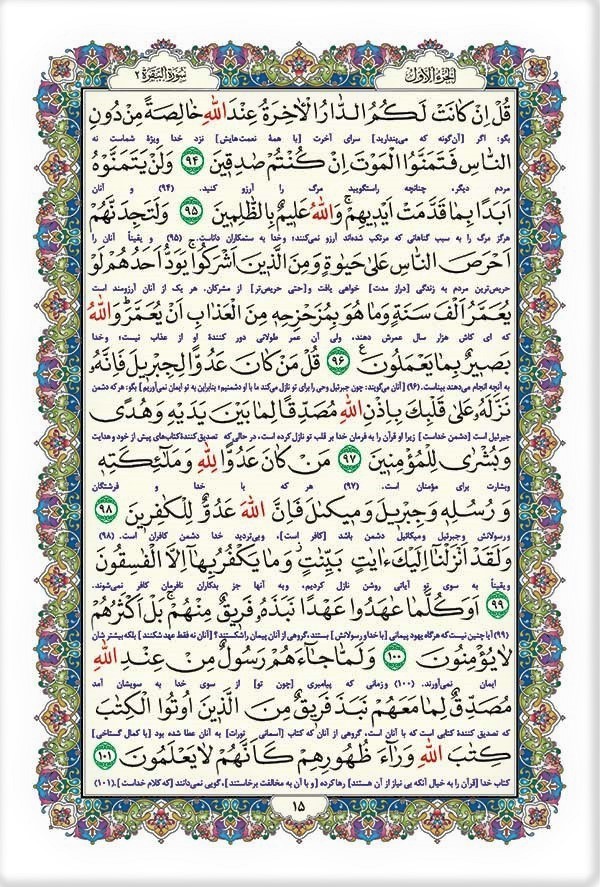 الجزء الأول
سورة البقرة ٢
قُلْ اِنْ كَانَتْ لَكُمُ الدَّارُ الْاٰخِرَةُ عِنْدَ اللّٰهِ خَالِصَةً مِنْ دُونِ
بگو: اگر [آن‌گونه که می‌پندارید] سرای آخرت [با همهٔ نعمت‌هایش] نزد خدا ویژهٔ شماست نه
النَّاسِ فَتَمَنَّوُا الْمَوْتَ اِنْ كُنْتُمْ صٰدِقِينَ ٩٤ وَلَنْ يَتَمَنَّوْهُ
مردم دیگر، چنانچه راستگویید مرگ را آرزو کنید. (۹۴) و آنان
اَبَدًا بِمَا قَدَّمَتْ اَيْدِيهِمْ وَاللّٰهُ عَلِيمٌ بِالظّٰلِمِينَ ٩٥ وَلَتَجِدَنَّهُمْ
هرگز مرگ را به سبب گناهانی که مرتکب شده‌اند آرزو نمی‌کنند؛ و خدا به ستمکاران داناست. (۹۵) و یقیناً آنان را
اَحْرَصَ النَّاسِ عَلٰى حَيٰوةٍ وَمِنَ الَّذِينَ اَشْرَكُوا يَوَدُّ اَحَدُهُمْ لَوْ
حریص‌ترین مردم به زندگی [دراز مدت] خواهی یافت و [حتی حریص‌تر] از مشرکان. هر یک از آنان آرزومند است
يُعَمَّرُ اَلْفَ سَنَةٍ وَمَا هُوَ بِمُزَحْزِحِهٖ مِنَ الْعَذَابِ اَنْ يُعَمَّرَ وَاللّٰهُ
که ای کاش هزار سال عمرش دهند، ولی آن عمر طولانی دور کنندهٔ او از عذاب نیست؛ و خدا
بَصِيرٌ بِمَا يَعْمَلُونَ ٩٦ قُلْ مَنْ كَانَ عَدُوًّا لِجِبْرِيلَ فَاِنَّهُ
به آنچه انجام می‌دهند بیناست. (۹۶) [آنان می‌گویند: چون جبرئیل وحی را برای تو نازل می‌کند ما با او دشمنیم؛ بنابراین به تو ایمان نمی‌آوریم] بگو: هر که دشمن
نَزَّلَهُ عَلٰى قَلْبِكَ بِاِذْنِ اللّٰهِ مُصَدِّقًا لِمَا بَيْنَ يَدَيْهِ وَهُدًى
جبرئیل است [دشمن خداست] زیرا او قرآن را به فرمان خدا بر قلب تو نازل کرده است، در حالی که تصدیق کنندهٔ کتاب‌های پیش از خود و هدایت
وَبُشْرٰى لِلْمُؤْمِنِينَ ٩٧ مَنْ كَانَ عَدُوًّا لِلّٰهِ وَمَلٰٓئِكَتِهٖ
وبشارت برای مؤمنان است. (۹۷) هر که با خدا و فرشتگان
وَرُسُلِهٖ وَجِبْرِيلَ وَمِيكٰىلَ فَاِنَّ اللّٰهَ عَدُوٌّ لِلْكٰفِرِينَ ٩٨
ورسولانش وجبرئیل ومیکائیل دشمن باشد [کافر است]، وبی‌تردید خدا دشمن کافران است. (۹۸)
وَلَقَدْ اَنْزَلْنَا اِلَيْكَ اٰيٰتٍ بَيِّنٰتٍ وَمَا يَكْفُرُ بِهَا اِلَّا الْفٰسِقُونَ
و یقیناً به سوی تو آیاتی روشن نازل کردیم، و به آنها جز بدکاران نافرمان کافر نمی‌شوند.
٩٩ اَوَكُلَّمَا عٰهَدُوا عَهْدًا نَبَذَهُ فَرِيقٌ مِنْهُمْ بَلْ اَكْثَرُهُمْ
(۹۹) آیا چنین نیست که هرگاه یهود پیمانی [با خدا و رسولانش] بستند، گروهی از آنان پیمان را شکستند؟ [آنان نه فقط عهد شکنند] بلکه بیشترشان
لَا يُؤْمِنُونَ ١٠٠ وَلَمَّا جَآءَهُمْ رَسُولٌ مِنْ عِنْدِ اللّٰهِ
ایمان نمی‌آورند. (۱۰۰) و زمانی که پیامبری [چون تو] از سوی خدا به سویشان آمد
مُصَدِّقٌ لِمَا مَعَهُمْ نَبَذَ فَرِيقٌ مِنَ الَّذِينَ اُوتُوا الْكِتٰبَ
که تصدیق کنندهٔ کتابی است که با آنان است، گروهی از آنان که کتاب [آسمانی تورات] به آنان عطا شده بود [با کمال گستاخی]
كِتٰبَ اللّٰهِ وَرَآءَ ظُهُورِهِمْ كَاَنَّهُمْ لَا يَعْلَمُونَ ١٠١
کتاب خدا [قرآن را به خیال آنکه بی نیاز از آن هستند] رها کرده [و با آن به مخالفت برخاستند]، گویی نمی‌دانند [که کلام خداست]. (۱۰۱)
١٥